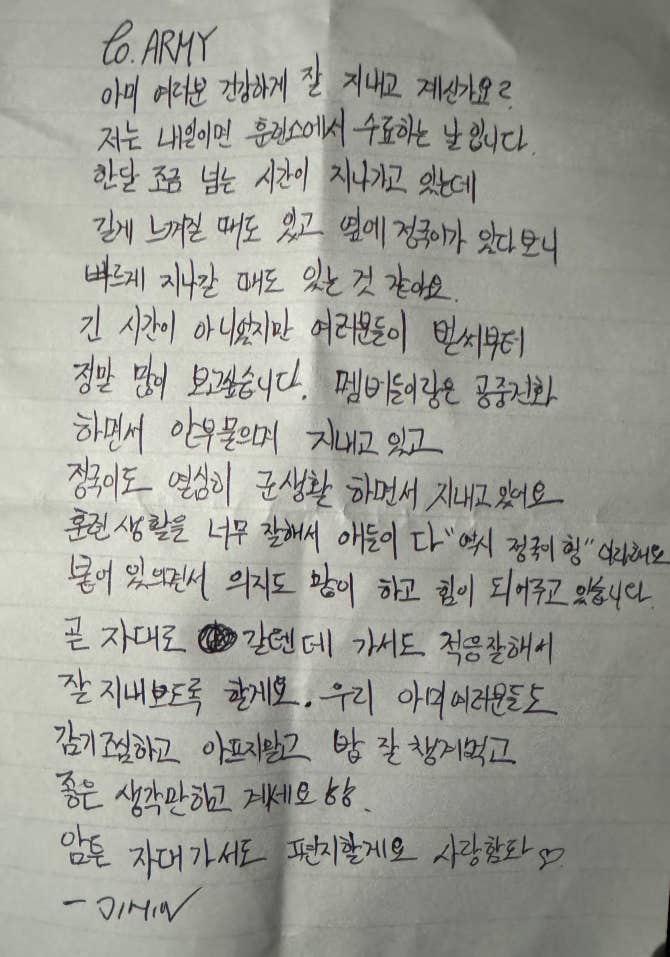 To. ARMY
아미 여러분 건강하게 잘 지내고 계신가요?
저는 내일이면 훈련소에서 수료하는 날 입니다.
한달 조금 넘는 시간이 지나가고 있는데
길게 느껴질 때도 있고 옆에 정국이가 있다보니
빠르게 지나갈 때도 있는 것 같아요.
긴 시간이 아니었지만 여러분들이 벌써부터
정말 많이 보고싶습니다. 멤버들이랑은 공중전화
하면서 안부물으며 지내고 있고
정국이도 열심히 군생활 하면서 지내고 있어요
훈련 생활을 너무 잘해서 애들이 다 "역시 정국이 형" 이라해요
붙어 있으면서 의지도 많이 하고 힘이 되어주고 있습니다.
곧 자대로 갈텐데 가서도 적응잘해서
잘 지내보도록 할게요. 우리 아미여러분들도
감기조심하고 아프지말고 밥 잘 챙겨먹고
좋은 생각만하고 계세요 핫핫.
암튼 자대가서도 편지할게요 사랑함돠 ♡
- JIMIN